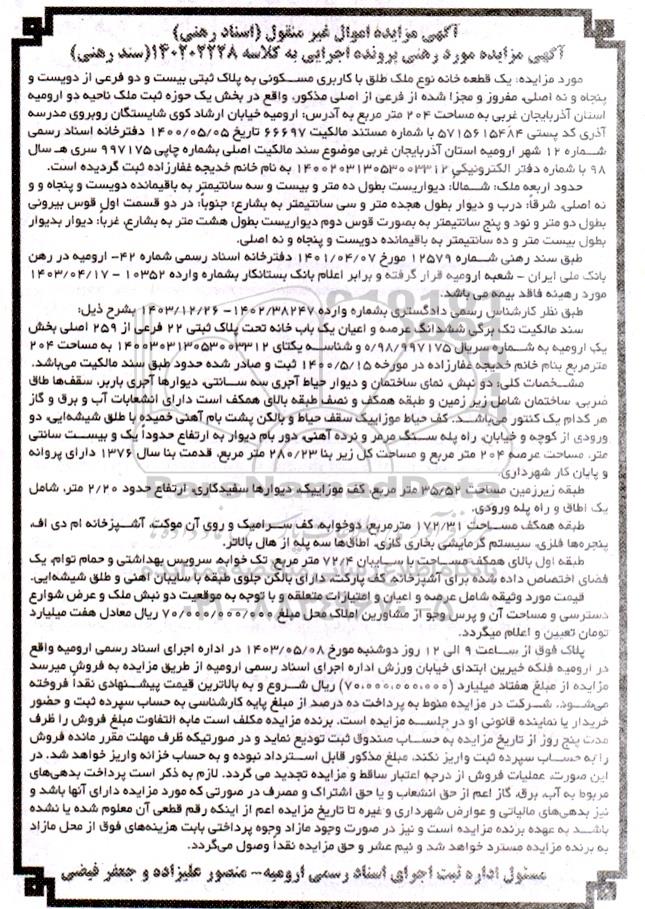 آگهی مزایده اموال غیر منقول (اسناد رهنی)
آگهی مزایده مورد رهنی پرونده اجرایی به کلاسه ۱۴۰۲۰۲۲۲۸(سند رهنی)
مورد مزایده: یک قطعه خانه نوع ملک طلق با کاربری مسکونی به پلاک ثبتی بیست و دو فرعی از دویست و
پنجاه و نه اصلی، مفروز و مجزا شده از فرعی از اصلی مذکور، واقع در بخش یک حوزه ثبت ملک ناحیه دو ارومیه
استان آذربایجان غربی به مساحت ۲۰۴ متر مربع به آدرس: ارومیه خیابان ارشاد کوی شایستگان روبروی مدرسه
آذری کد پستی ۵۷۱۵۶۱۵۴۸۴ با شماره مستند مالکیت ۶۶۶۹۷ تاریخ ۱۴۰۰/۰۵/۰۵ دفترخانه اسناد رسمی
شماره ۱۲ شهر ارومیه استان آذربایجان غربی موضوع سند مالکیت اصلی بشماره چاپی ۹۹۷۱۷۵ سری هـ سال
۹۸ با شماره دفتر الکترونیکی ۱۴۰۰۲۰۳۱۳۰۵۳۰۰۳۳۱۲ به نام خانم خدیجه غفارزاده ثبت گردیده است.
حدود اربعه ملک: شمالاً: دیواریست بطول ده متر و بیست و سه سانتیمتر به باقیمانده دویست و پنجاه و و
نه اصلی، شرقاً: درب و دیوار بطول هجده متر و سی سانتیمتر به بشارع: جنوباً: در دو قسمت اول قوس بیرونی
بطول دو متر و نود و پنج سانتیمتر به بصورت قوس دوم دیواریست بطول هشت متر به بشارع، غرباً: دیوار بدیوار
بطول بیست متر و ده سانتیمتر به باقیمانده دویست و پنجاه و نه اصلی.
طبق سند رهنی شماره ۱۲۵۷۹ مورخ ۱۴۰۱/۰۴/۰۷ دفترخانه اسناد رسمی شماره ۴۲- ارومیه در رهن
بانک ملی ایران - شعبه ارومیه قرار گرفته و برابر اعلام بانک بستانکار بشماره وارده ۱۰۳۵۲ - ۱۴۰۳/۰۴/۱۷
مورد رهینه فاقد بیمه می باشد.
طبق نظر کارشناس رسمی دادگستری بشماره وارده ۱۴۰۲/۳۸۲۴۷- ۱۴۰۳/۱۲/۲۶ بشرح ذیل:
سند مالکیت تک برگی ششدانگ عرصه و اعیان یک باب خانه تحت پلاک ثبتی ۲۲ فرعی از ۲۵۹ اصلی بخش
یک ارومیه به شماره سریال ۰/۹۸/۹۹۷۱۷۵ و شناسه یکتای ۱۴۰۰۳۰۳۱۳۰۵۳۰۰۳۳۱۲ به مساحت ۲۰۴
مترمربع بنام خانم خدیجه غفارزاده در مورخه ۱۴۰۰/۵/۱۵ ثبت و صادر شده حدود طبق سند مالکیت می‌باشد.
مشخصات کلی: دو نبش، نمای ساختمان و دیوار حیاط آجری سه سانتی، دیوارها آجری باربر، سقف‌ها طاق
ضربی، ساختمان شامل زیر زمین و طبقه همکف و نصف طبقه بالای همکف است دارای انشعابات آب و برق و گاز
هر کدام یک کنتور می‌باشد. کف حیاط موزاییک سقف حیاط و بالکن پشت بام آهنی خمیده با طلق شیشه‌ایی، دو
ورودی از کوچه و خیابان، راه پله سنگ مرمر و نرده آهنی، دور بام دیوار به ارتفاع حدوداً یک و بیست سانتی
متر، مساحت عرصه ۲۰۴ متر مربع و مساحت کل زیر بنا ۲۸۰/۲۳ متر مربع، قدمت بنا سال ۱۳۷۶ دارای پروانه
و پایان کار شهرداری.
طبقه زیرزمین مساحت ۳۵/۵۲ متر مربع، کف موزاییک، دیوارها سفیدکاری، ارتفاع حدود ۲/۲۰ متر، شامل
یک اطاق و راه پله ورودی.
طبقه همکف مساحت ۱۷۲/۳۱ مترمربع، دوخوابه، کف سرامیک و روی آن موکت، آشپزخانه ام دی اف،
پنجره‌ها فلزی، سیستم گرمایشی بخاری گازی، اطاق‌ها سه پله از هال بالاتر.
طبقه اول بالای همکف مساحت با سایبان ۷۲٫۴ متر مربع، تک خوابه، سرویس بهداشتی و حمام توام، یک
فضای اختصاص داده شده برای آشپزخانه، کف پارکت، دارای بالکن جلوی طبقه با سایبان آهنی و طلق شیشه‌ایی.
قیمت مورد وثیقه شامل عرصه و اعیان و امتیازات متعلقه و با توجه به موقعیت دو نبش ملک و عرض شوارع
دسترسی و مساحت آن و پرس وجو از مشاورین املاک محل مبلغ ۷۰/۰۰۰/۰۰۰/۰۰۰ ریال معادل هفت میلیارد
تومان تعیین و اعلام میگردد.
پلاک فوق از ساعت ۹ الی ۱۲ روز دوشنبه مورخ ۱۴۰۳/۰۵/۰۸ در اداره اجرای اسناد رسمی ارومیه واقع
در ارومیه فلکه خیرین ابتدای خیابان ورزش اداره اجرای اسناد رسمی ارومیه از طریق مزایده به فروش میرسد
مزایده از مبلغ هفتاد میلیارد (۷۰،۰۰۰،۰۰۰،۰۰۰) ریال شروع و به بالاترین قیمت پیشنهادی نقداً فروخته
می‌شود. شرکت در مزایده منوط به پرداخت ده درصد از مبلغ پایه کارشناسی به حساب سپرده ثبت و حضور
خریدار یا نماینده قانونی او در جلسه مزایده است. برنده مزایده مکلف است مابه التفاوت مبلغ فروش را ظرف
مدت پنج روز از تاریخ مزایده به حساب صندوق ثبت تودیع نماید و در صورتیکه ظرف مهلت مقرر مانده فروش
را به حساب سپرده ثبت واریز نکند، مبلغ مذکور قابل استرداد نبوده و به حساب خزانه واریز خواهد شد. در
این صورت، عملیات فروش از درجه اعتبار ساقط و مزایده تجدید می گردد. لازم به ذکر است پرداخت بدهی‌های
مربوط به آب، برق، گاز اعم از حق انشعاب و یا حق اشتراک و مصرف در صورتی که مورد مزایده دارای آنها باشد و
نیز بدهی‌های مالیاتی و عوارض شهرداری و غیره تا تاریخ مزایده اعم از اینکه رقم قطعی آن معلوم شده یا نشده
باشد به عهده برنده مزایده است و نیز در صورت وجود مازاد وجوه پرداختی بابت هزینه‌های فوق از محل مازاد
به برنده مزایده مسترد خواهد شد و نیم عشر و حق مزایده نقداً وصول می‌گردد.
مسئول اداره ثبت اجرای اسناد رسمی ارومیه- منصور علیزاده و جعفر فیضی